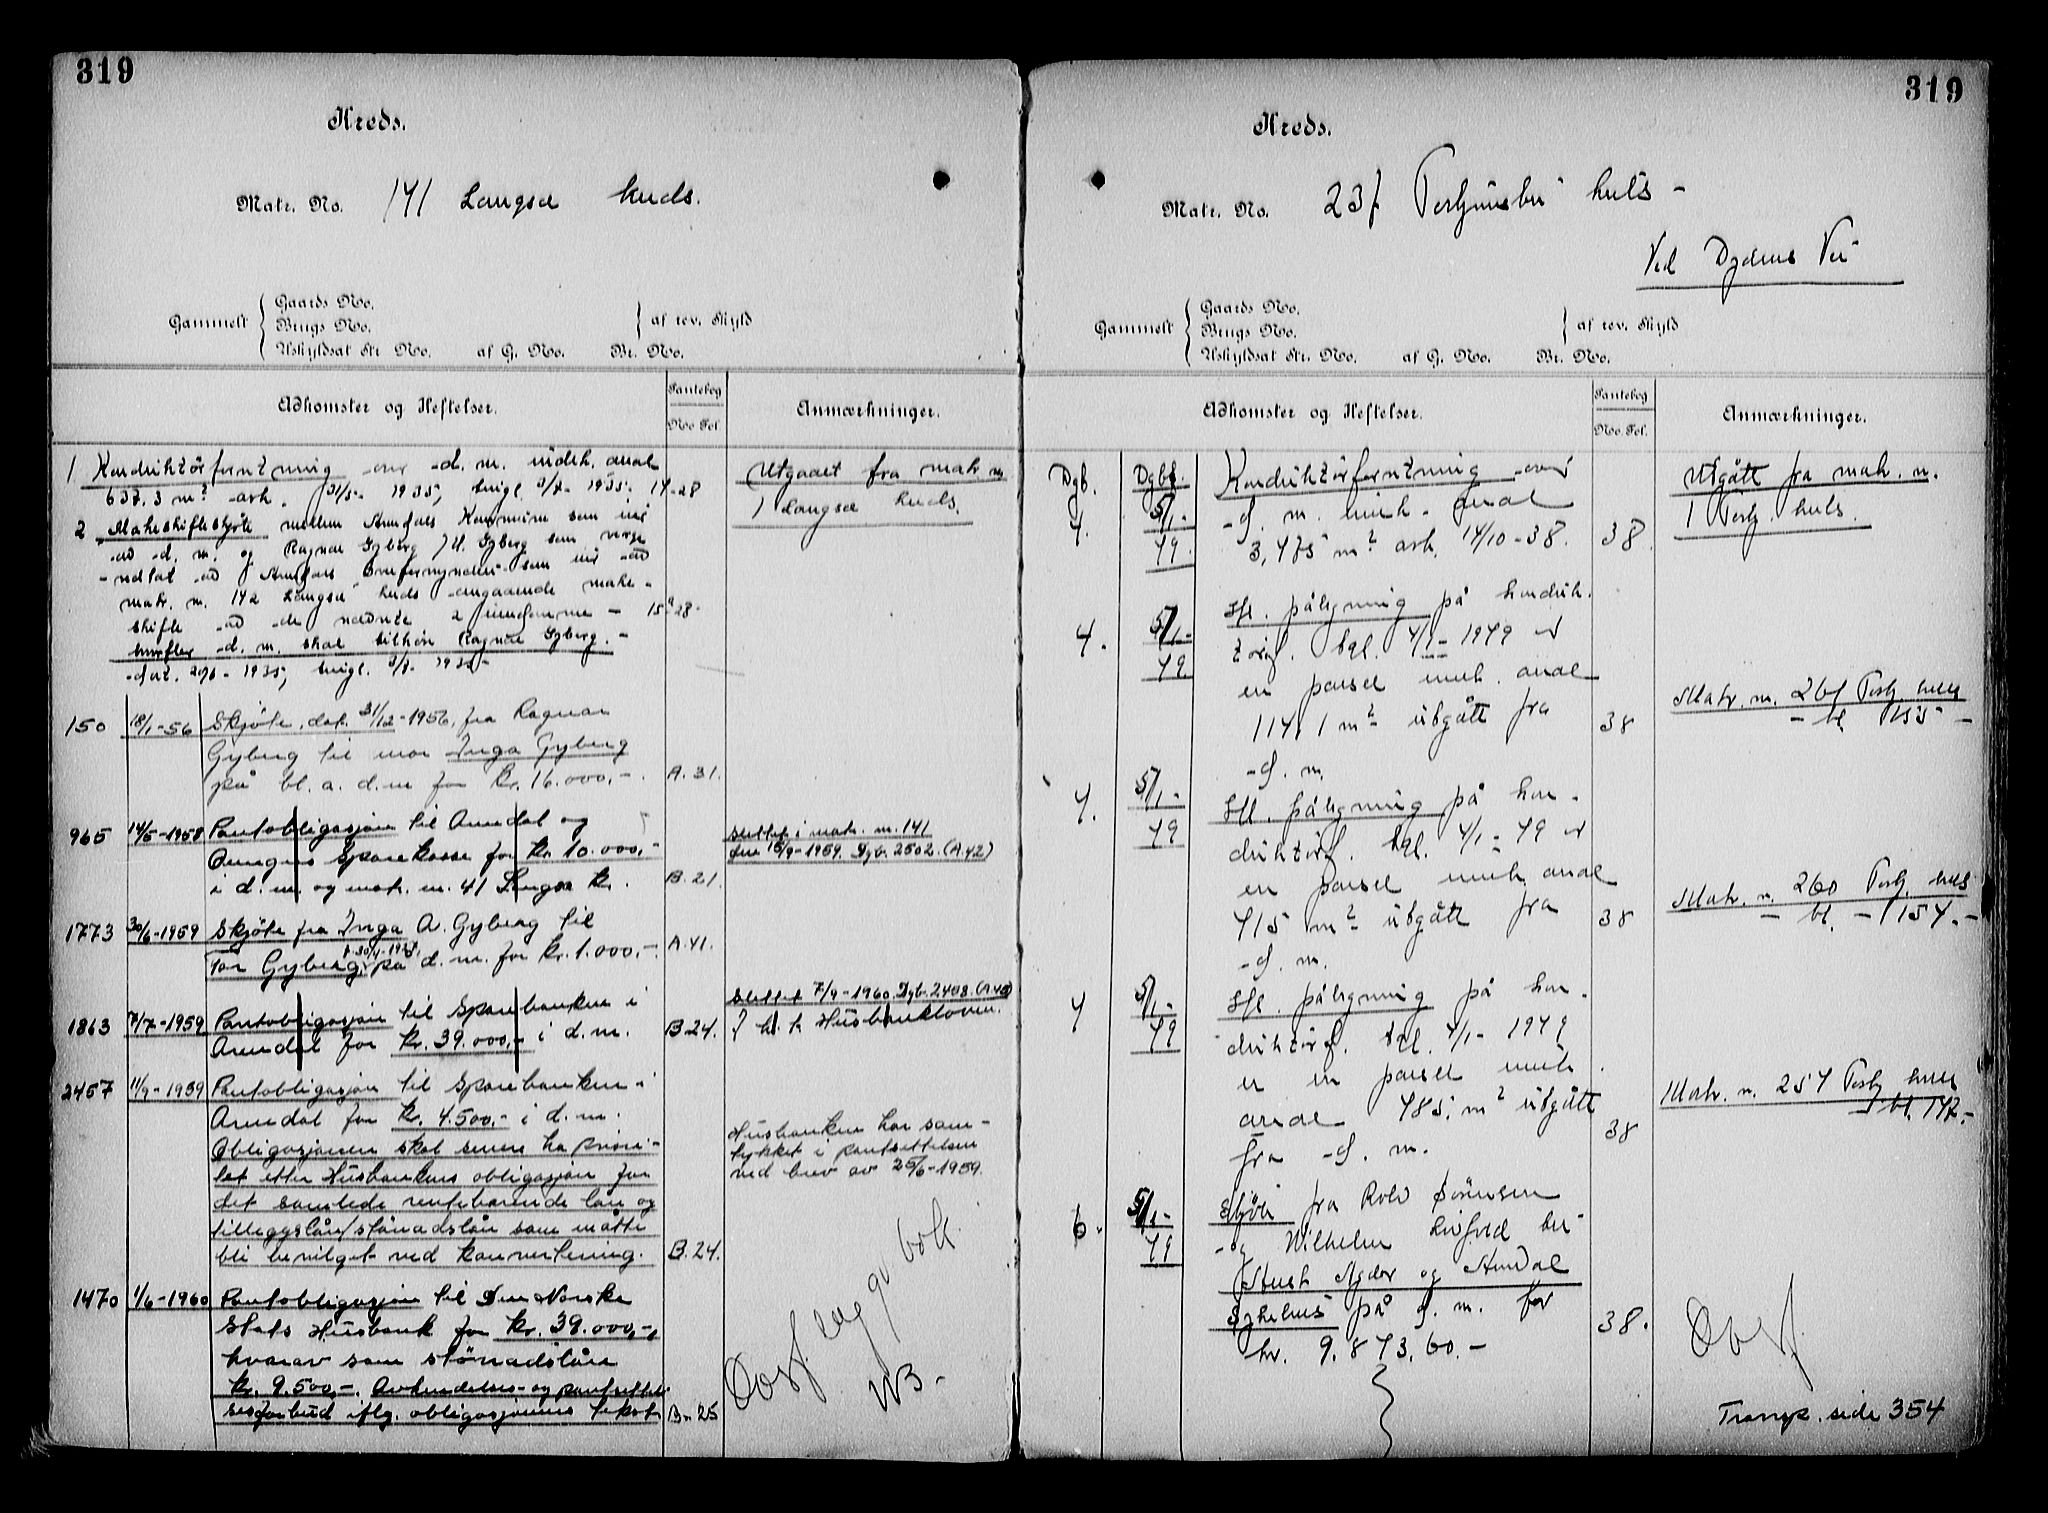 319
Kreds.
Matr. No. 141 Langsæ kreds.
Gammelt
Gaards No.
Brugs No.
Uskyldsat Str. No. af G. No. Br. No.
af rev. Skyld
Adkomster og Heftelser.
Pantebog
No Fol.
Anmærkninger.
1 Konduktørforretning over d. m. indeh. areal
637.3 m² avh. 31/5 - 1935, tingl. 1935. 14-28
Utgaaet fra matr. n
1 Langsæ kreds.
2 Makeskifteskjøte mellem Arendals Kommune som eier
av d. m. og Ragnar Gyberg Gyberg som verge
Arendals Overformynderi som eier av
matr. n. 142 Langsæ kreds angaaende make-
skifte av de nævnte 2 eiendomme - 15-28-
hvorefter d. m. skal tilhøre Ragnar Gyberg. -
dat. 1935, tingl. 1935-
150 18/1-56 Skjøte, dat. 31/12-1956, fra Ragnar
Gyberg til mor Inga Gyberg
på bl. a. d.m for kr. 16.000,-. A.31.
965 14/5-1958 Pantobligasjon til Arendal og
Omegns Sparekasse for kr. 10.000,-
i d. m. og matr. n. 41 Langsæ kr. B.21.
Slettet i matr. n. 141
den 15/9-1959. Dgb. 2502. (A.42)
1773 30/6-1959 Skjøte fra Inga A. Gyberg til
Tor Gyberg, på d. m. for kr. 1.000,-. A.41.
1863 7/7-1959 Pantobligasjon til Sparebanken i
Arendal for kr. 39.000,- i d. m. B.24.
Slettet 7/9-1960. Dgb. 2408. (A.48)
J h. t. Husbankloven.
2457 11/9-1959 Pantobligasjon til Sparebanken i
Arendal for kr. 4.500,- i d. m.
Obligasjonen skal senere ha priori-
tet etter Husbankens obligasjon for
det samlede rentebærende lån og
tilleggslån/stønadslån som måtte
bli bevilget ved konvertering. B.24.
Husbanken har sam-
tykket i pantsettelsen
ved brev av 25/6-1959.
1470 1/6-1960 Pantobligasjon til Den Norske
Stats Husbank for kr. 39.000,-,
hvorav som stønadslån
kr. 9.500,-. Avhendelses- og pantsettel-
sesforbud iflg. obligasjonens tekst. B.25
Overf. bok.
NB-
319
Kreds.
Matr. No. 237 Torbjørnsbu kreds -
Ved Dydens Vei
Gammelt
Gaards No.
Brugs No.
Uskyldsat Str. No. af G. No. Br. No.
af rev. Skyld
Adkomster og Heftelser.
Pantebog
No. Fol.
Anmærkninger.
Dgb. Dgbf. Konduktørforretning over
4. 5/1-49. d. m. inneh. areal
3,475 m² avh. 14/10-38. 38.
Utgått fra matr. n.
1 Torbj. kreds.
4. 5/1-49. Hfl. påtegning på konduk-
tørf. tgl. 4/1-1949 at
en parsel inneh. areal
1141,1 m² utgått fra 38
d. m.
Matr. n. 261 Torbj. kreds
- bl. 155 -
4. 5/1-49 Hfl. påtegning på kon-
duktørf. tgl. 4/1-49 at
en parsel inneh. areal
415 m² utgått fra 38
d. m.
Matr. n. 260 Torbj. kreds
- bl. - 154. -
4 5/1-49 Hfl. påtegning på kon-
duktørf. tgl. 4/1-1949
at en parsel inneh.
areal 485. m² utgått 38
fra d. m.
Matr. n. 257 Torbj kreds
bl. 147.-
6. 5/1-49 Skjøte fra Rolv Sørensen
og Wilhelm til
Aust Agder og Arendal
Sykehus på d. m. for 38.
kr. 9.873,60.-
Overf.
Transp. side 354